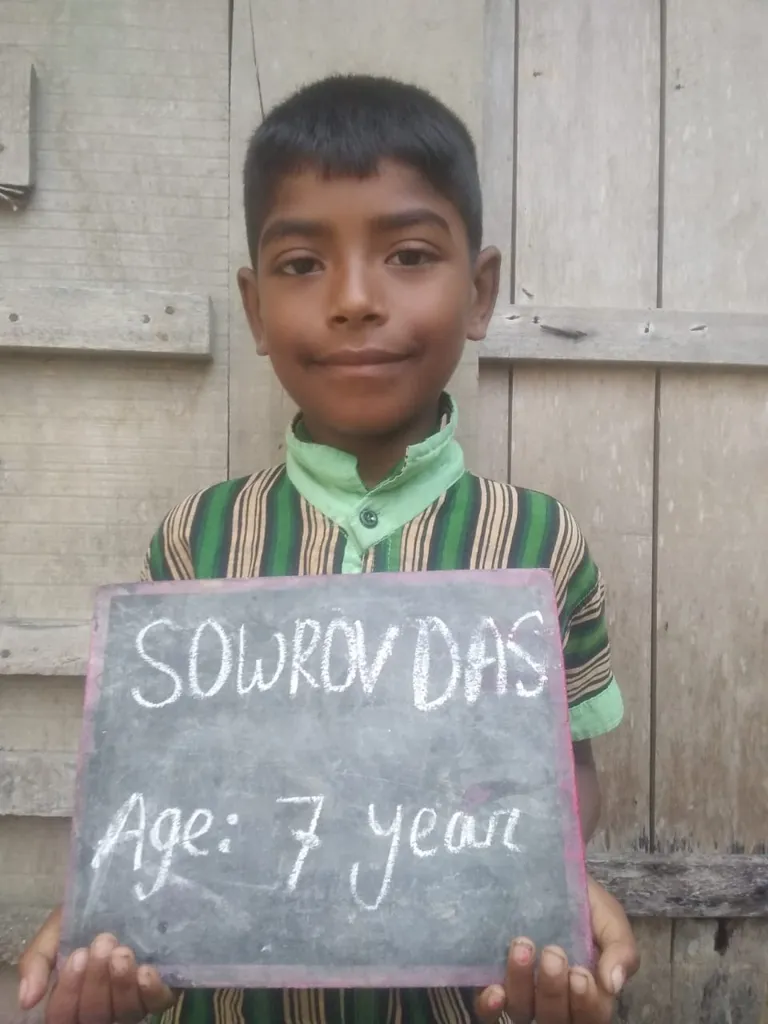 SOWROV DAS
Age: 7 year